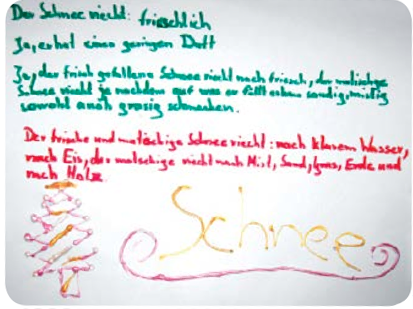 Der Schnee riecht: frieschlich
Ja, er hat einen geringen Duft
Ja, der frisch gefallene Schnee riecht nach friesch, der matschige
Schnee riecht je nachdem auf was er fällt eben sandig, mistig
sowohl auch grasig schmecken.
Der frische und matschige Schnee riecht: nach klarem Wasser,
nach Eis, der matschige riecht nach Mist, Sand, Gras, Erde und
nach Holz.
Schnee